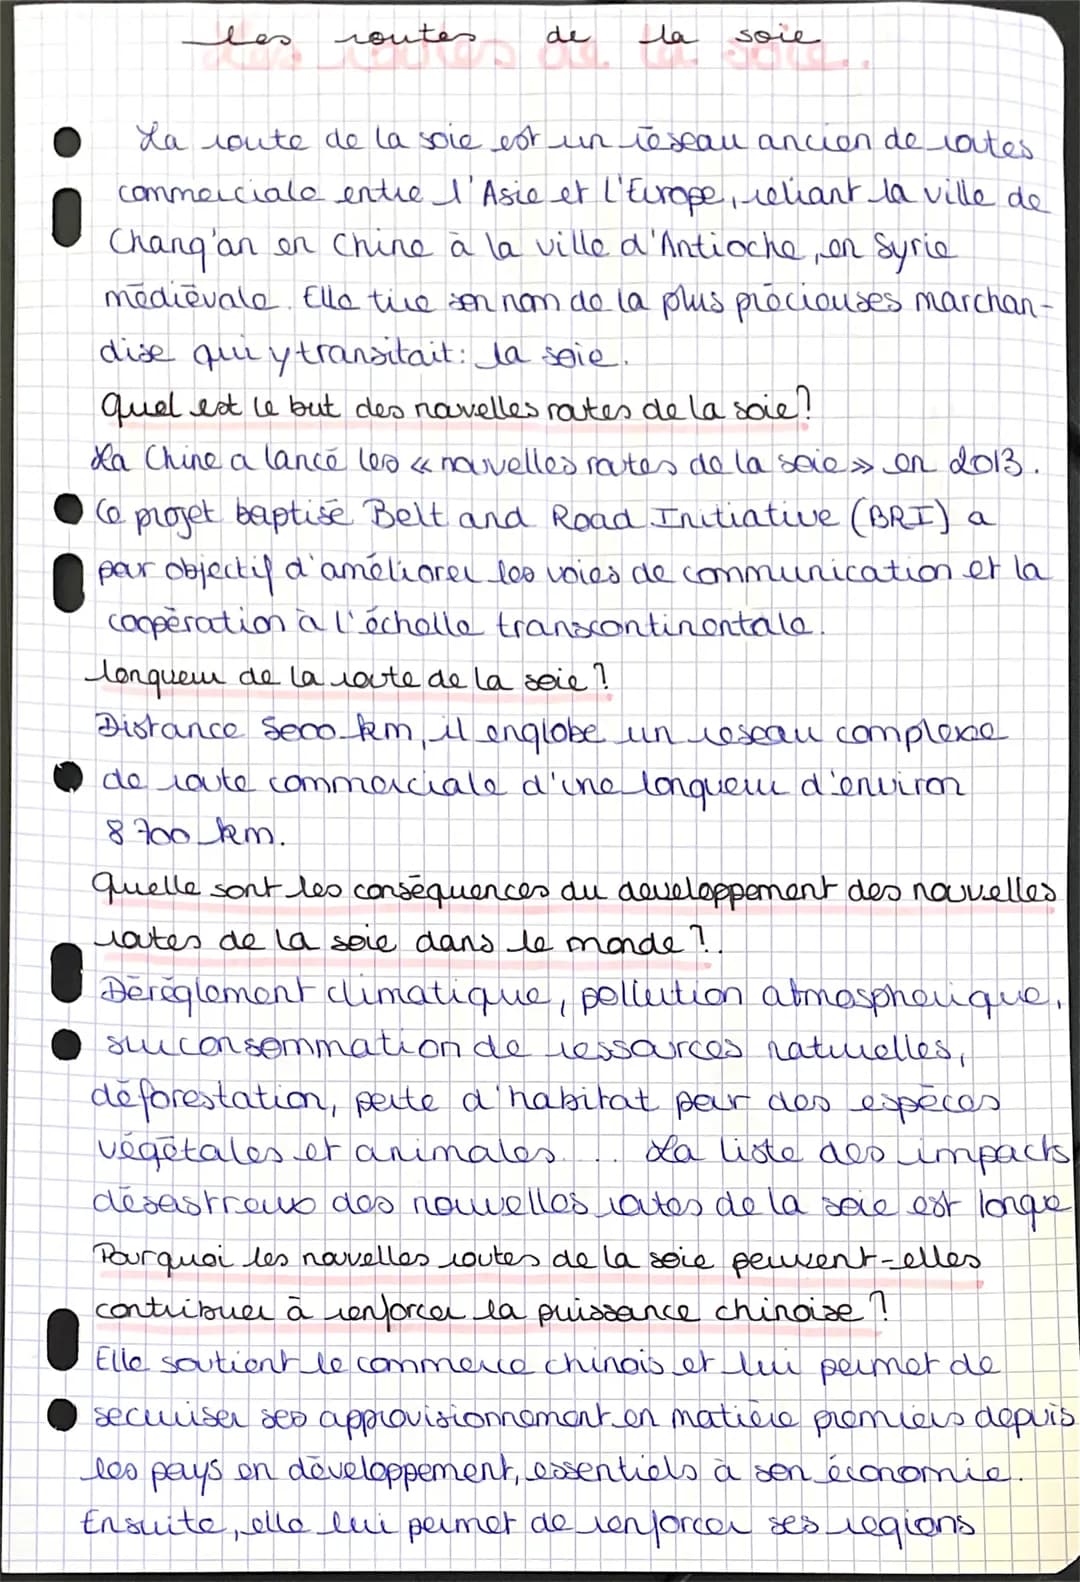 Les routes de la soie
La route de la soie est un réseau ancien de routes
commerciale entre l'Asie et l'Europe, reliant la ville de
Chang'an en Chine à la ville d'Antioche, en Syrie
médiévale. Elle tire son nom de la plus précieuses marchan-
dise qui y transitait : la soie.
Quel est le but des nouvelles routes de la soie ?
La Chine a lancé les « nouvelles routes de la soie » en 2013.
Ce projet baptisé Belt and Road Initiative (BRI) a
par objectif d'améliorer les voies de communication et la
coopération à l'échelle transcontinentale.
longueur de la route de la soie ?
Distance 5000 km, il englobe un reseau complexe
de route commerciale d'une longueur d'environ
8 700 km.
Quelle sont les conséquences du developpement des nouvelles
routes de la soie dans le monde ?.
Dérèglement climatique, pollution atmospherique,
surconsommation de ressources naturelles,
déforestation, perte d'habitat par des espèces
végétales et animales... La liste des impacts
désastreux des nouvelles routes de la soie est longue
Pourquoi les nouvelles routes de la soie peuvent-elles
contribuer à renforcer la puissance chinoise ?
Elle soutient le commerce chinois et lui permet de
securiser ses approvisionnement en matière premiers depuis
les pays en développement, essentiels à son économie.
Ensuite, elle lui permet de renforcer ses regions